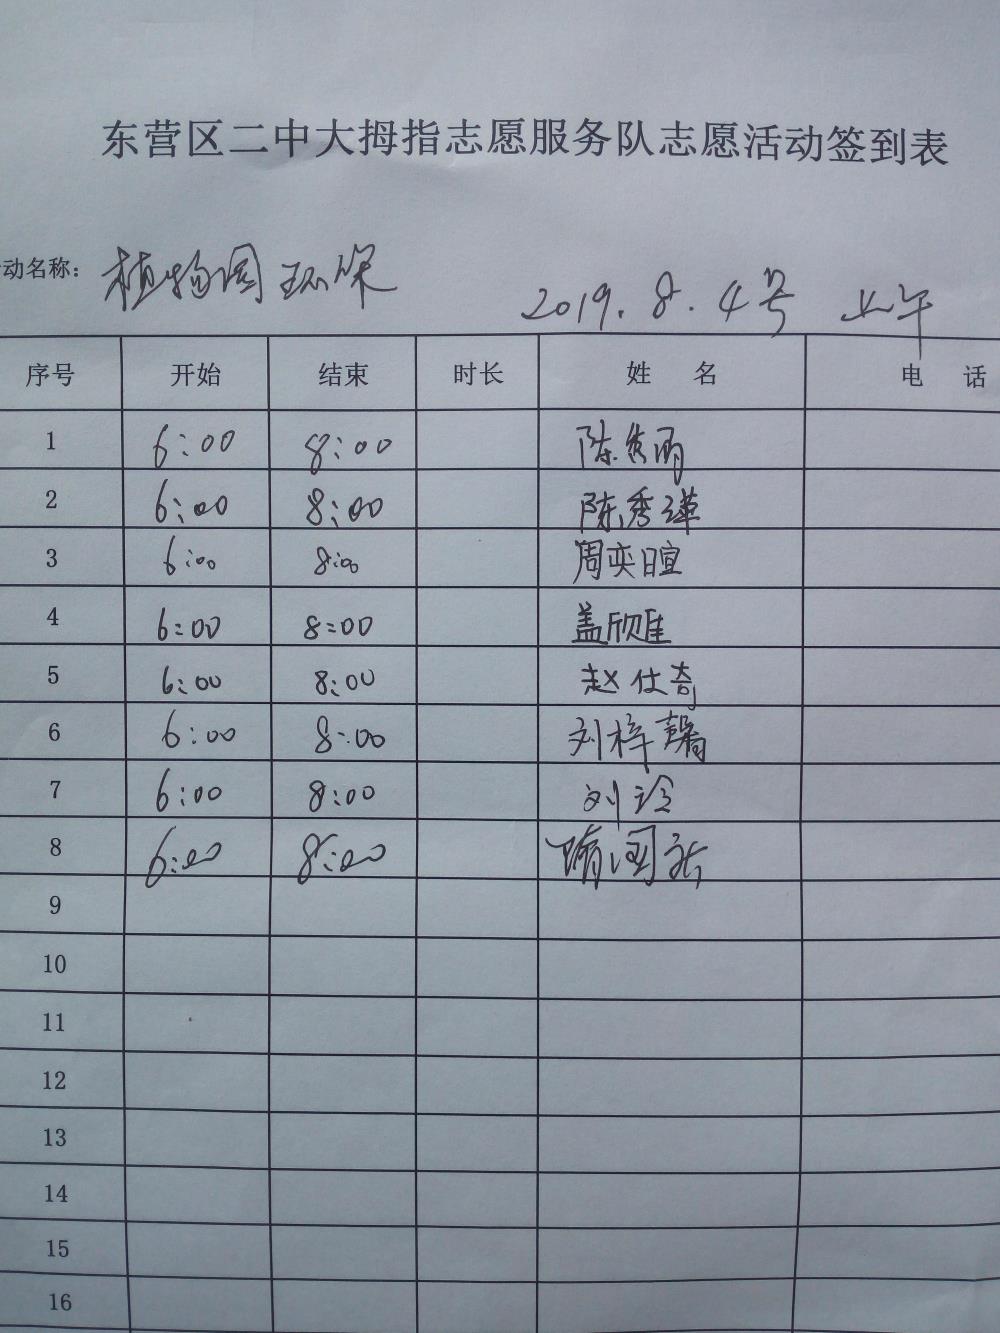 东营区二中大拇指志愿服务队志愿活动签到表
动名称：植物园环保 2019.8.4号 上午
序号 开始 结束 时长 姓名 电话
1 6:00 8:00 陈俊雨
2 6:00 8:00 陈秀瑾
3 6:00 8:00 周奕暄
4 6:00 8:00 盖欣隹
5 6:00 8:00 赵仕奇
6 6:00 8:00 刘梓馨
7 6:00 8:00 刘
8 6:00 8:00
9
10
11
12
13
14
15
16